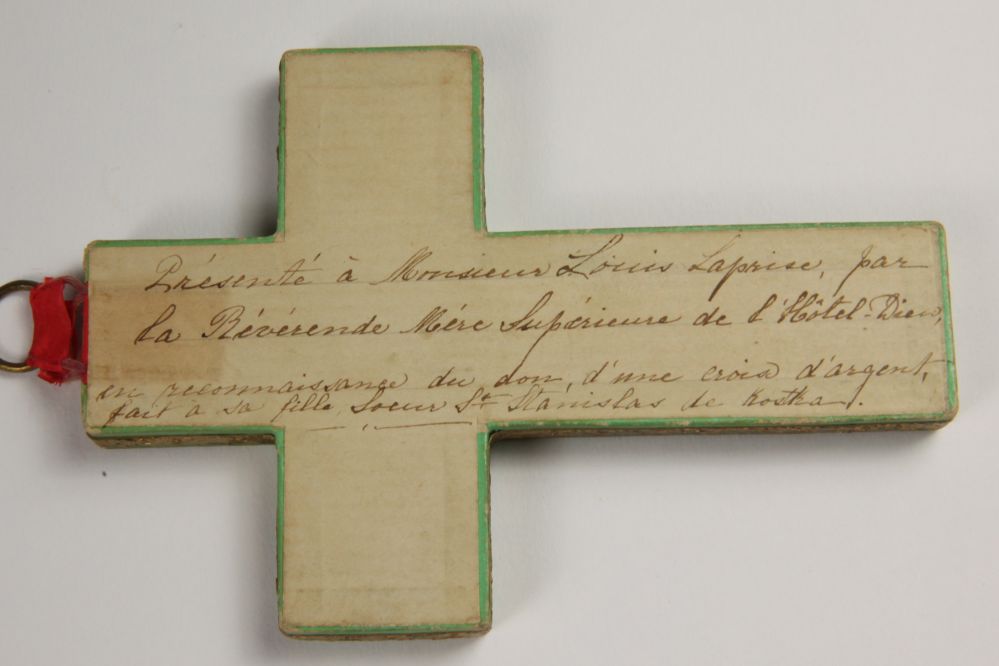 Présenté à Monsieur Louis Laprise, par
la Révérende Mère Supérieure de l'Hôtel-Dieu,
en reconnaissance du don, d'une croix d'argent,
fait à sa fille, Soeur St Stanislas de Kostka.